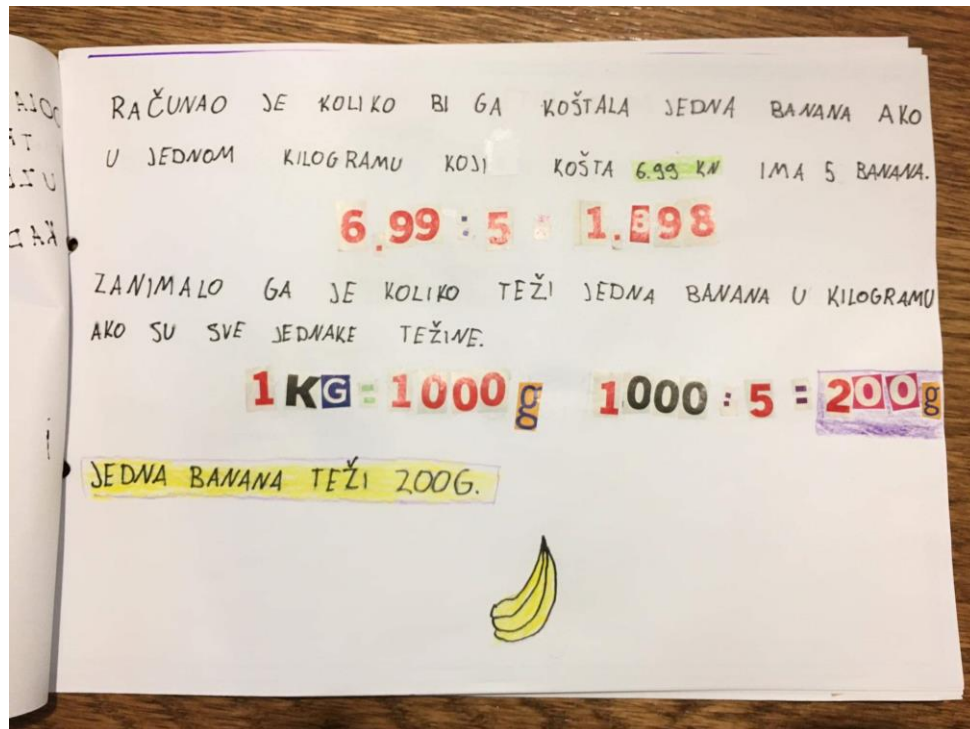 RAČUNAO JE KOLIKO BI GA KOŠTALA JEDNA BANANA AKO
U JEDNOM KILOGRAMU KOJI KOŠTA 6.99 KN IMA 5 BANANA.
6.99 : 5 = 1.398
ZANIMALO GA JE KOLIKO TEŽI JEDNA BANANA U KILOGRAMU
AKO SU SVE JEDNAKE TEŽINE.
1KG = 1000g 1000 : 5 = 200g
JEDNA BANANA TEŽI 200G.